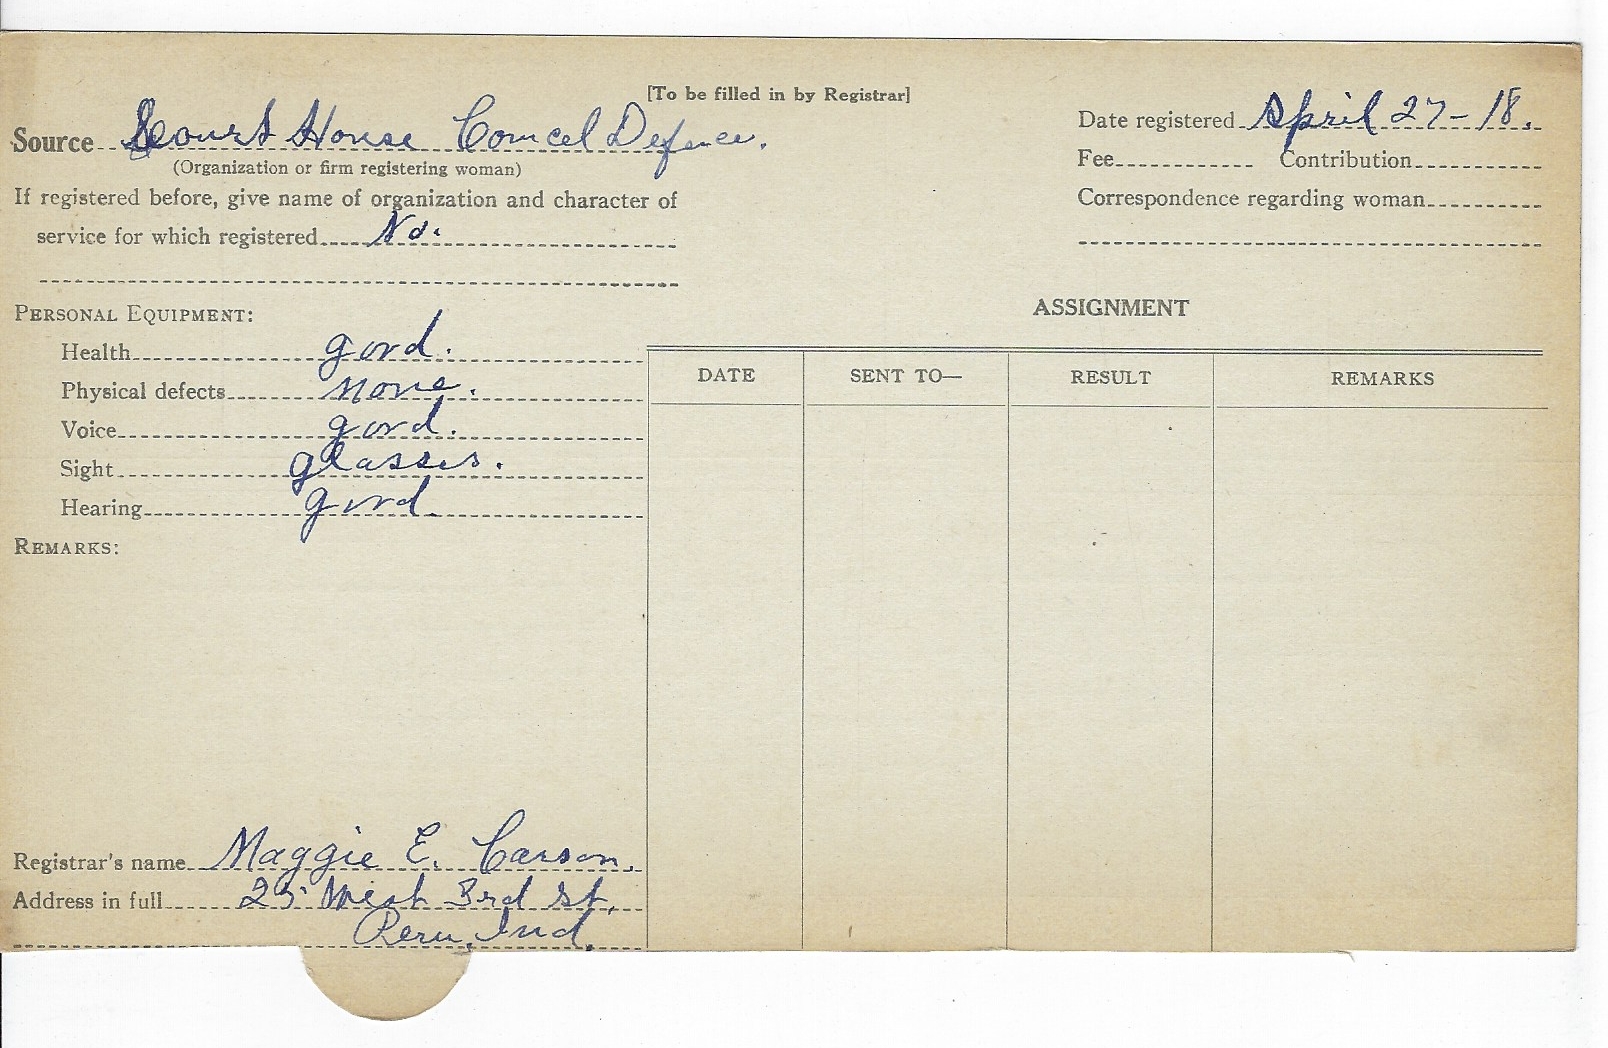 [To be filled in by Registrar]
Source Court House Councel Defence.
(Organization or firm registering woman)
Date registered April 27-18.
Fee Contribution
If registered before, give name of organization and character of
service for which registered No.
Correspondence regarding woman
PERSONAL EQUIPMENT:
Health good.
Physical defects none.
Voice good.
Sight glasses.
Hearing good.
REMARKS:
ASSIGNMENT
DATE SENT TO— RESULT REMARKS
Registrar's name Maggie E. Carson.
Address in full 25 West 3rd St,
Peru, Ind.